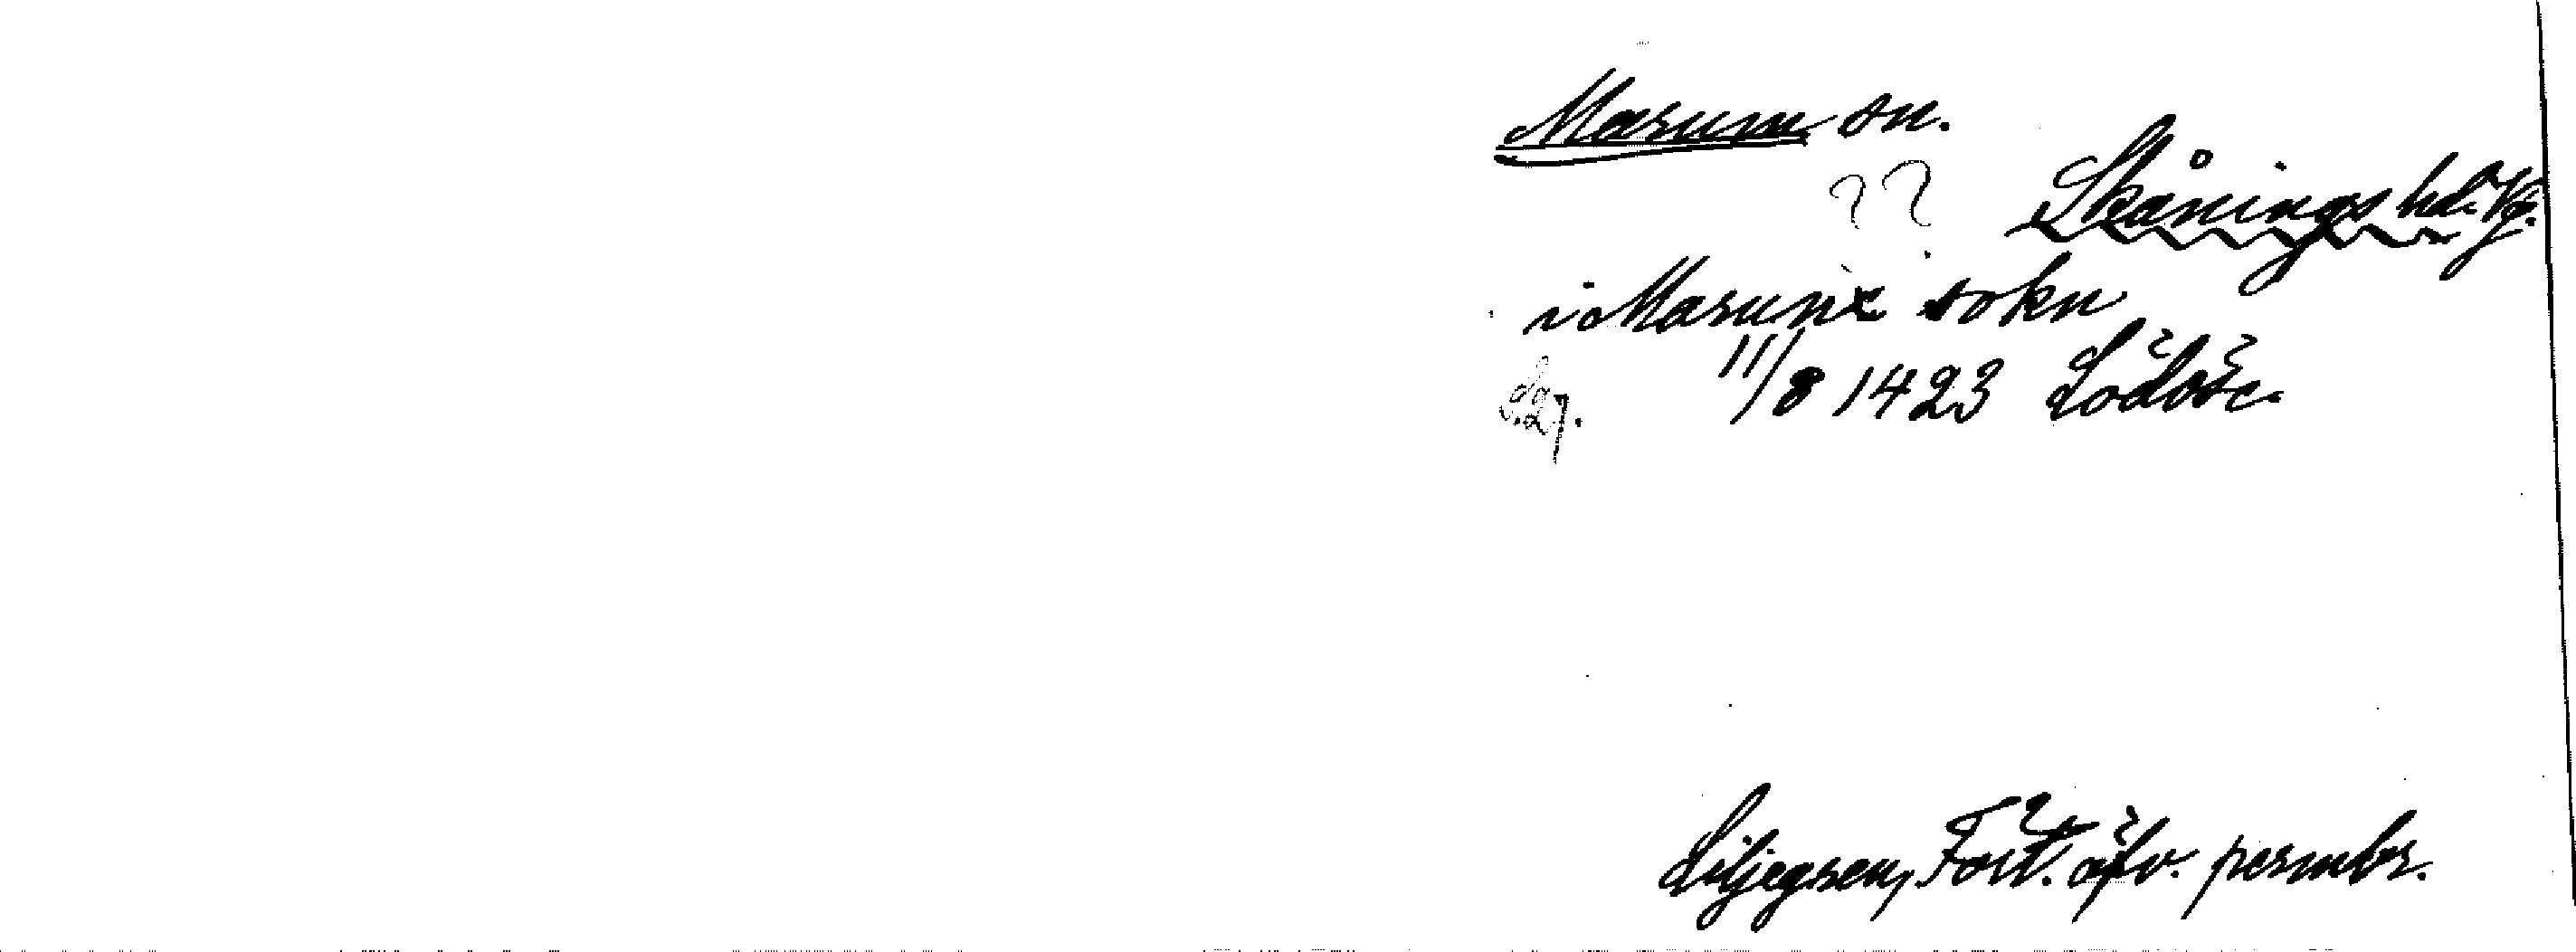 Marum sn.
?? Skånings hd. Vg.
i Marunæ sokn
11/8 1423 Lödöse.
Liljegren, Fört. öfv. permbr.